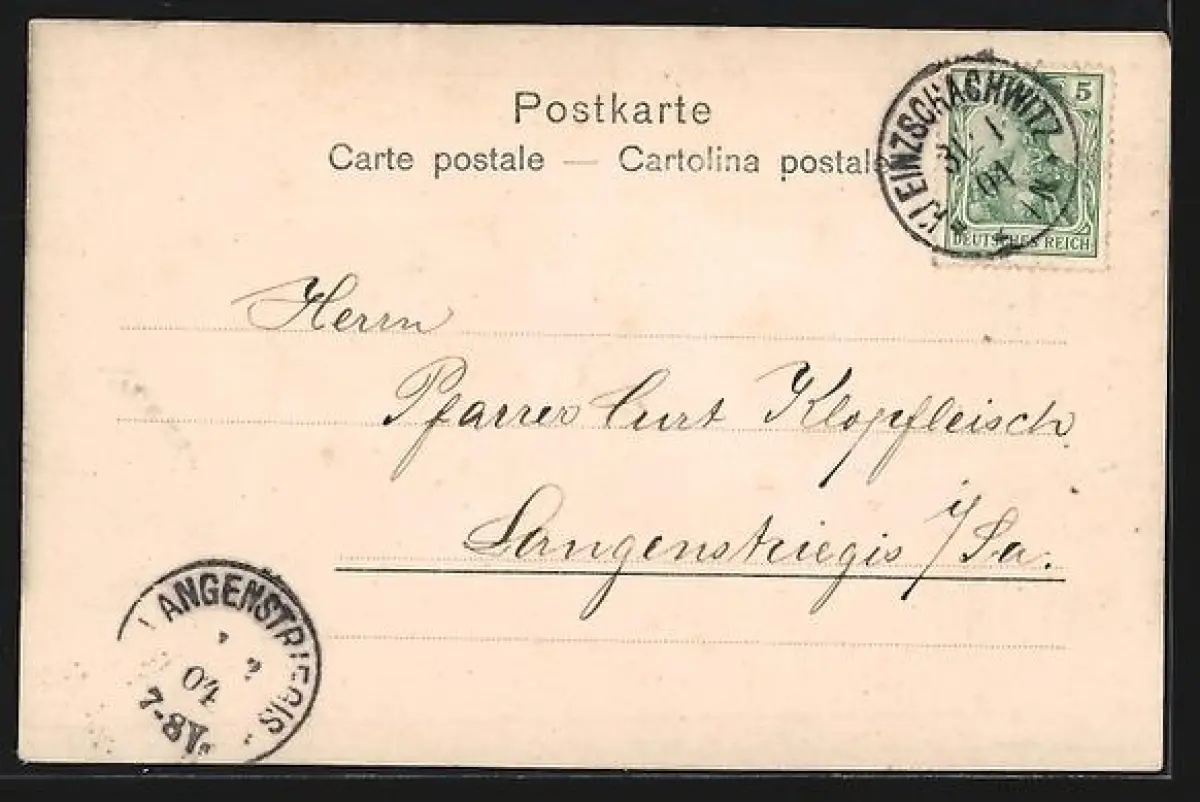 Postkarte
Carte postale — Cartolina postale
KLEINZSCHACHWITZ
31 1
04
N
5
DEUTSCHES REICH
Herrn
Pfarrer Curt Klopfleisch
Langenstriegis i/Sa.
LANGENSTRIEGIS
2
04
7-8V